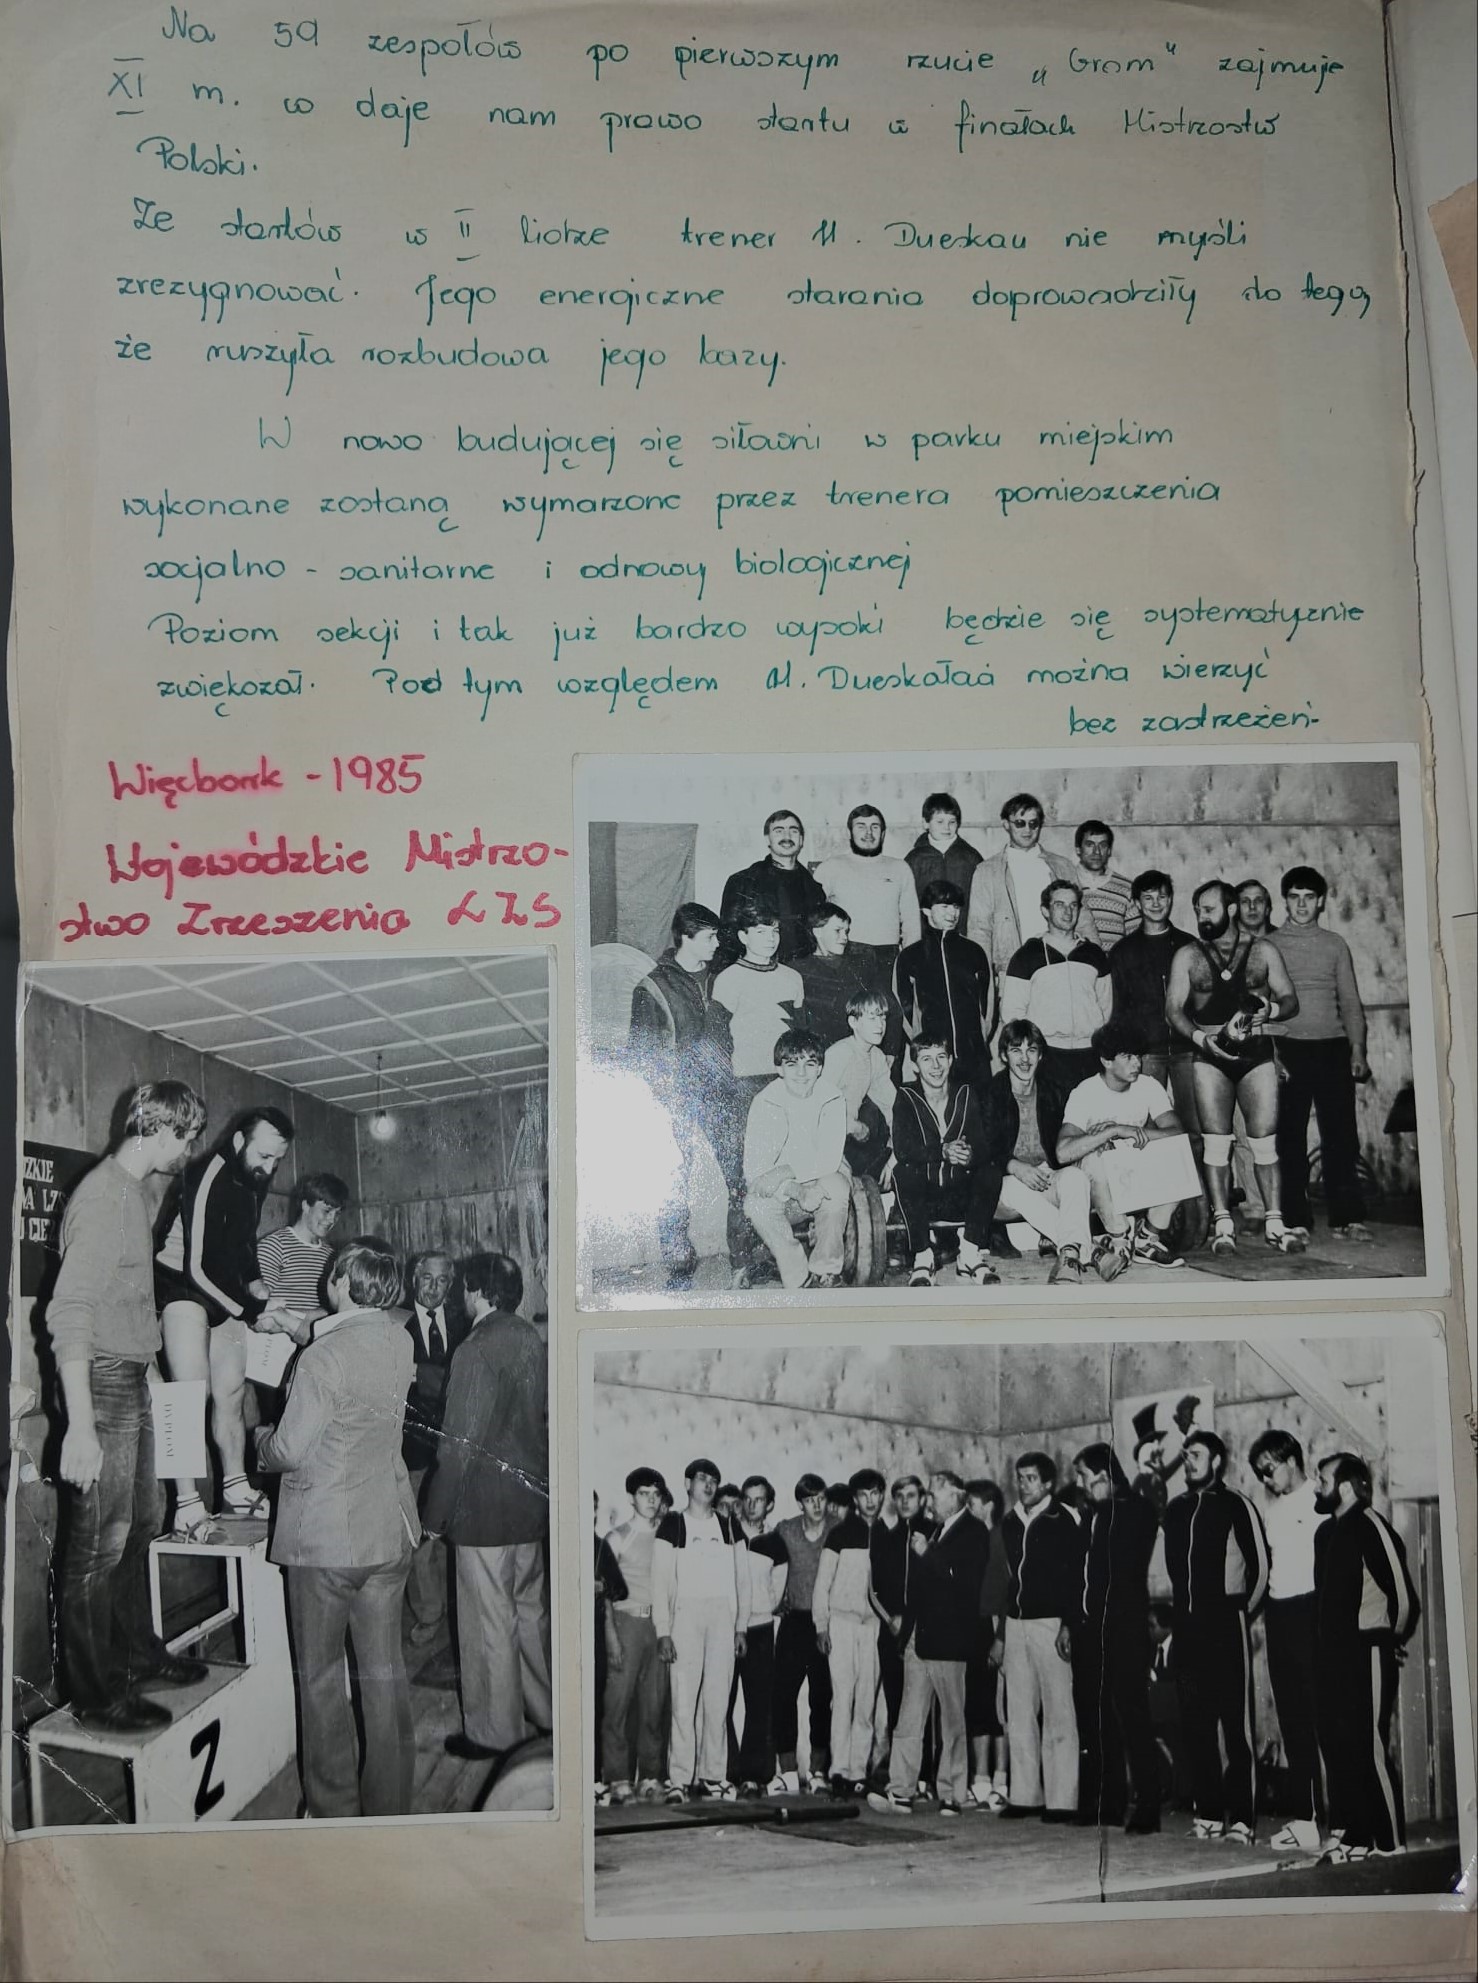 Na 59 zespołów po pierwszym rzucie „Grom" zajmuje
XI m. co daje nam prawo startu w finałach Mistrzostw
Polski.
Ze startów w II lidze trener M. Dueskau nie myśli
zrezygnować. Jego energiczne starania doprowadziły do tego,
że ruszyła rozbudowa jego bazy.
W nowo budującej się siłowni w parku miejskim
wykonane zostaną wymarzone przez trenera pomieszczenia
socjalno - sanitarne i odnowy biologicznej
Poziom sekcji i tak już bardzo wysoki będzie się systematycznie
zwiększał. Pod tym względem M. Dueskałaú można wierzyć
bez zastrzeżeń.
Więcbork - 1985
Wojewódzkie Mistrzo-
stwo Zrzeszenia LZS
ZKIE
A LZ
CIE
DYPLOM
2